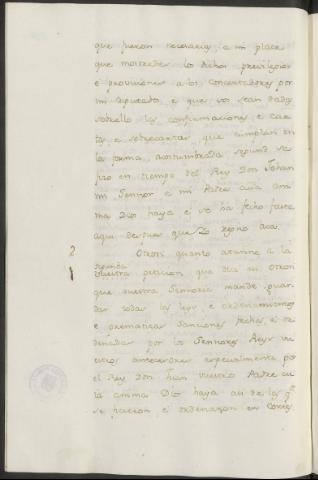 que fueren necesarias, a mi place
que mostredes los dichos privilegios
e provisiones a los Concertadores por
mi diputados, e que vos sean dadas
sobrello las confirmaciones, e car
tas e sobrecartas que cumplan en
la forma acostumbrada segund se
fizo en tiempo del Rey Don Johan
mi Señor e mi Padre cuia ani
ma Dios haya e se ha fecho fasta
aqui despues que Yo regno aca.
2 Otrosi quanto atanne a la
segunda
vuestra peticion que dice asi Otrosi
que vuestra Sennoria mande guar
dar todas las leys e ordenamientos
e prematicas sanciones fechas, e or
denadas por los Sennores Reys vu
estros antecesores especialmente por
el Rey Don Juan vuestro Padre cu
ia anima Dios haya asi de las qe
se ficieron e ordenaron en Cortes